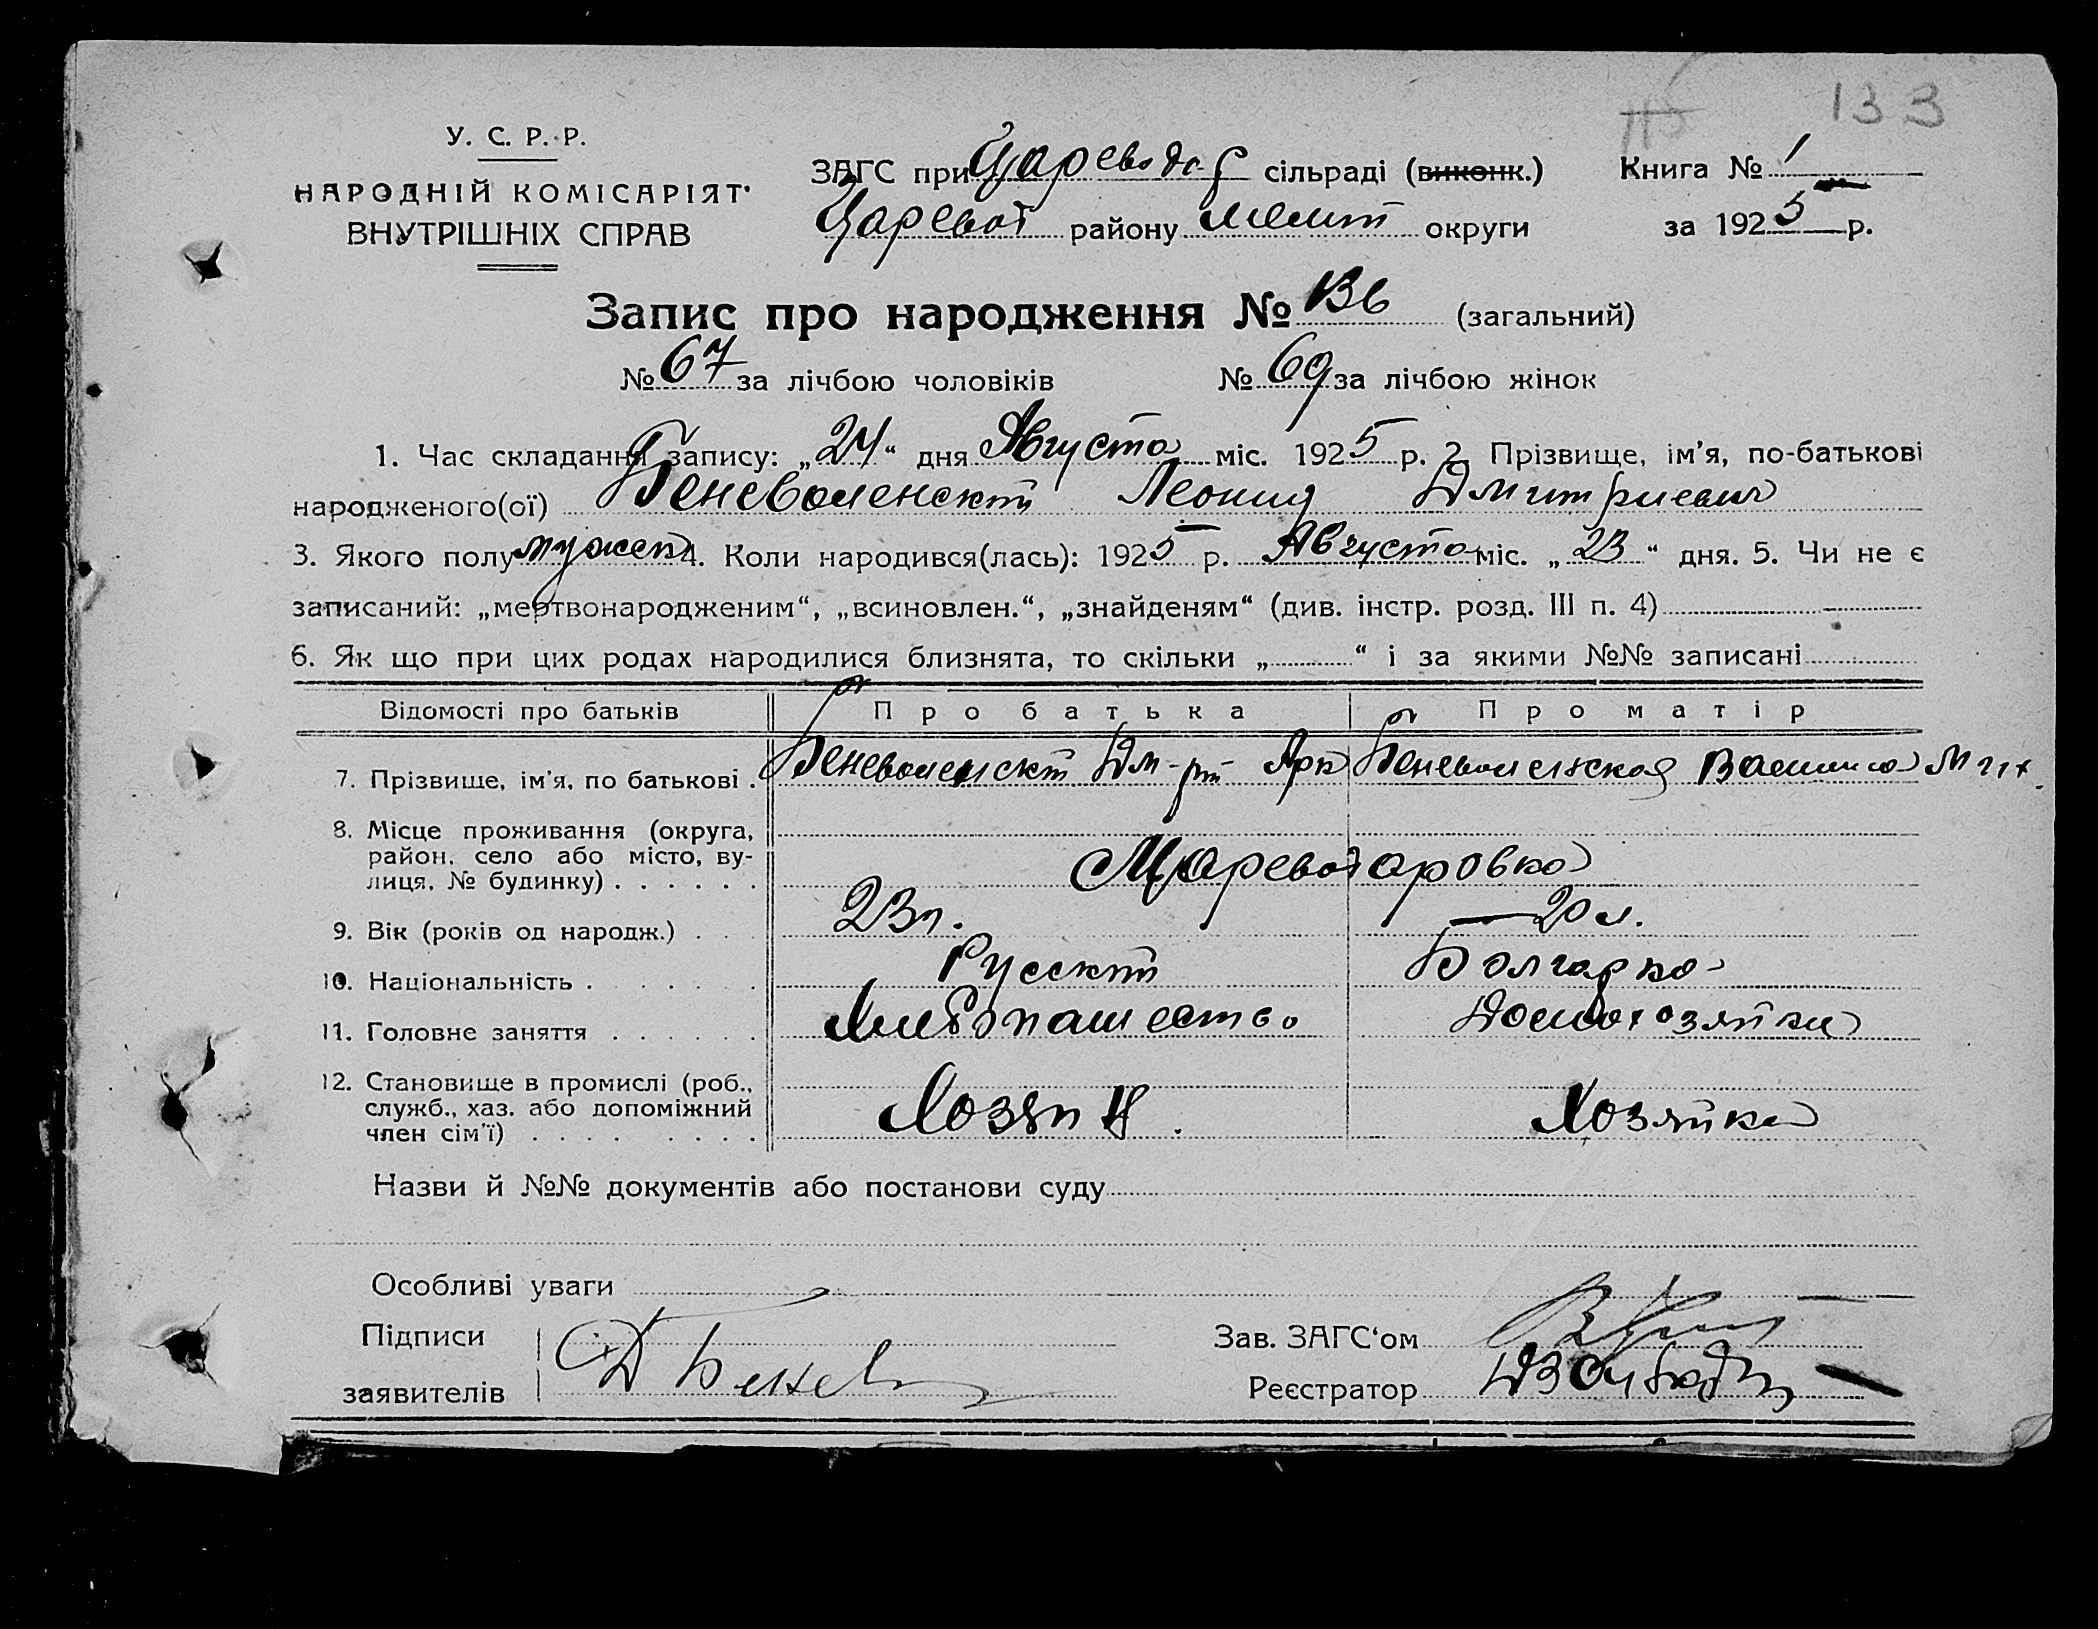 133
У. С. Р. Р.
НАРОДНІЙ КОМІСАРІЯТ
ВНУТРІШНІХ СПРАВ
ЗАГС при Царевода-р сільраді (виконк.) Книга № 1
Царевод району Мелит округи за 1925 р.
Запис про народження № 136 (загальний)
№ 67 за лічбою чоловіків № 69 за лічбою жінок
1. Час складання запису: „24“ дня Августа міс. 1925 р. 2. Прізвище, ім'я, по-батькові
народженого(ої) Беневоленский Леонид Дмитриевич
3. Якого полу мужск 4. Коли народився(лась): 1925 р. Августа міс. „23“ дня. 5. Чи не є
записаний: „мертвонародженим“, „всиновлен.“, „знайденям“ (див. інстр. розд. III п. 4)
6. Як що при цих родах народилися близнята, то скільки „ “ і за якими №№ записані
Відомості про батьків Про батька Про матір
7. Прізвище, ім'я, по батькові . Беневоленский Дм-рий Арк Беневоленская Василиса Мих.
8. Місце проживання (округа,
район, село або місто, ву-
лиця, № будинку) . . . . . . Цареводаровка
9. Вік (років од народж.) . . 23л. 20 л.
10. Національність . . . . . . Русский Болгарка
11. Головне заняття . . . . . . Хлебопашество Домохозяйка
12. Становище в промислі (роб.,
служб., хаз. або допоміжний
член сім'ї) . . . . . . . . Хозяин. Хозяйка
Назви й №№ документів або постанови суду
Особливі уваги
Підписи
Зав. ЗАГС‘ом
заявителів Д Бенев
Реєстратор